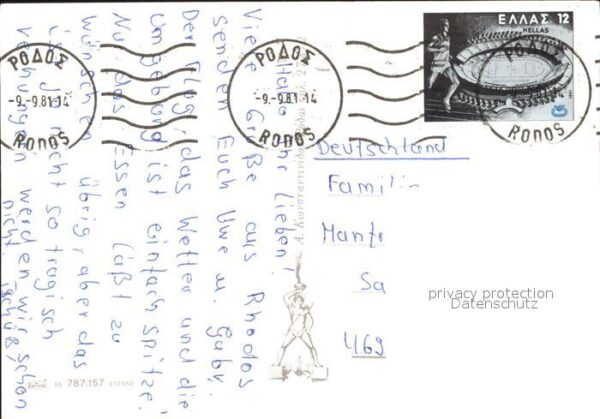 Hallo Ihr Lieben!
Viele Grüße aus Rhodos
senden Euch Uwe u. Gaby.
Der Flug, das Wetter und die
Umgebung ist einfach spitze!
Nur das Essen läßt zu
wünschen übrig, aber das
ist ja nicht so tragisch
verhungern werden wir schon
nicht.
ΕΛΛΑΣ 12
HELLAS
ΡΟΔΟΣ
-9.-9.81.14
RODOS
ΡΟΔΟΣ
-9.-9.81.14
RODOS
ΡΟΔΟΣ
RODOS
Deutschland
Famili
Sa
469
privacy protection
Datenschutz
787.157